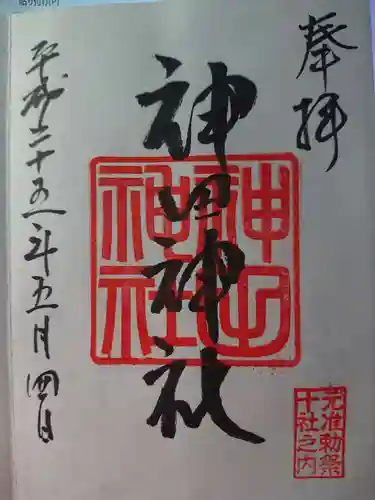 奉拝
神田神社
神田
神社
元准勅祭
十社之内
平成二十五年五月四日